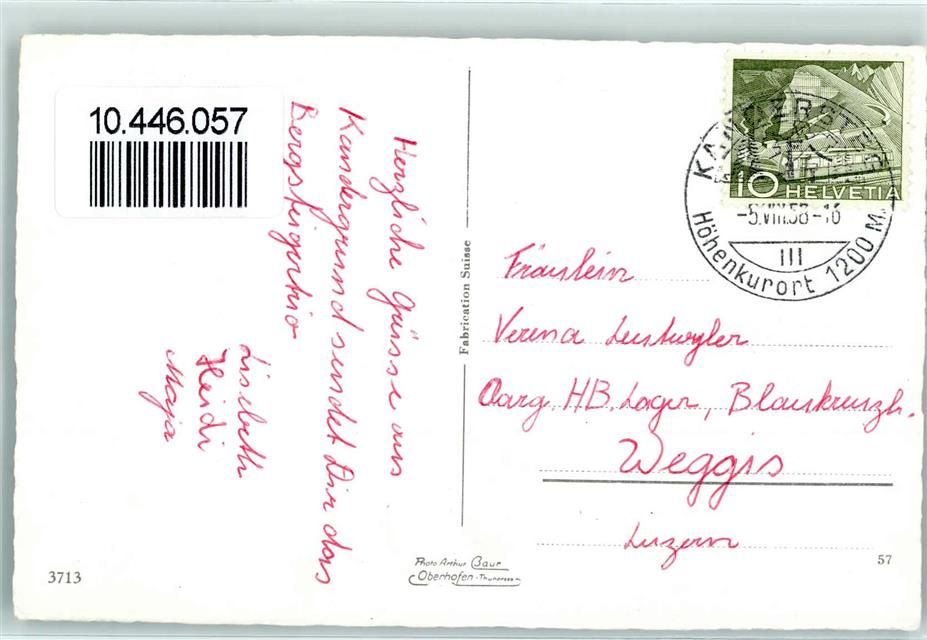 10.446.057
Herzliche Grüsse aus
Kandergrund sendet Dir das
Bergsteigertrio
Liselbeth
Heidi
Maja
Fabrication Suisse
10 HELVETIA
KANDERSTEG
-5.VIII.58-16
III
Höhenkurort 1200 M.
Fräulein
Verena Leutwyler
Aarg. HB. Lager, Blaukreuzh.
Weggis
Luzern
Photo Arthur Baur
Oberhofen-Thunersee
3713
57